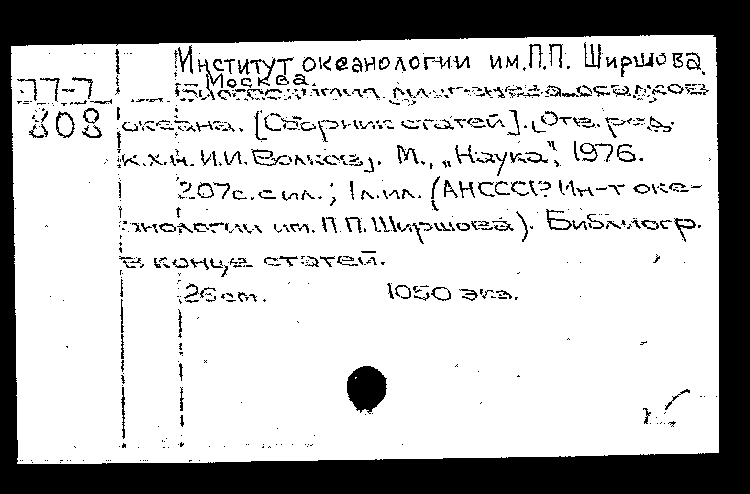 Институт океанологии им. П.П. Ширшова
Москва.
77-7
808
Биогеохимия диагенеза осадков
океана. [Сборник статей]. [Отв. ред.
к.х.н. И.И. Волков]. М., „Наука", 1976.
207с. с ил.; 1л. ил. (АН СССР Ин-т оке-
анологии им. П.П. Ширшова). Библиогр.
в конце статей.
26 см. 1050 экз.